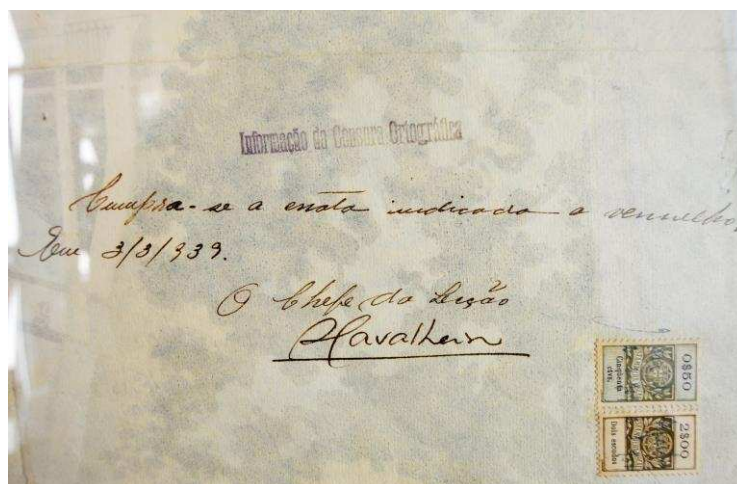 Informação da Censura Ortográfica
Cumpra-se a errata indicada a vermelho.
Em 3/3/939.
O Chefe da Secção
0$50
Cinquenta
ctvs.
2$00
Dois escudos